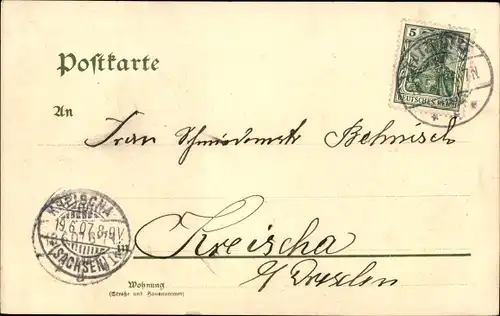 5
DEUTSCHES REICH
Postkarte
An
Frau Schmiedemstr. Behnisch
KREISCHA
19.6.07. 8-9V.
(SACHSEN)
Kreischa
b/Dresden
Wohnung
(Straße und Hausnummer)